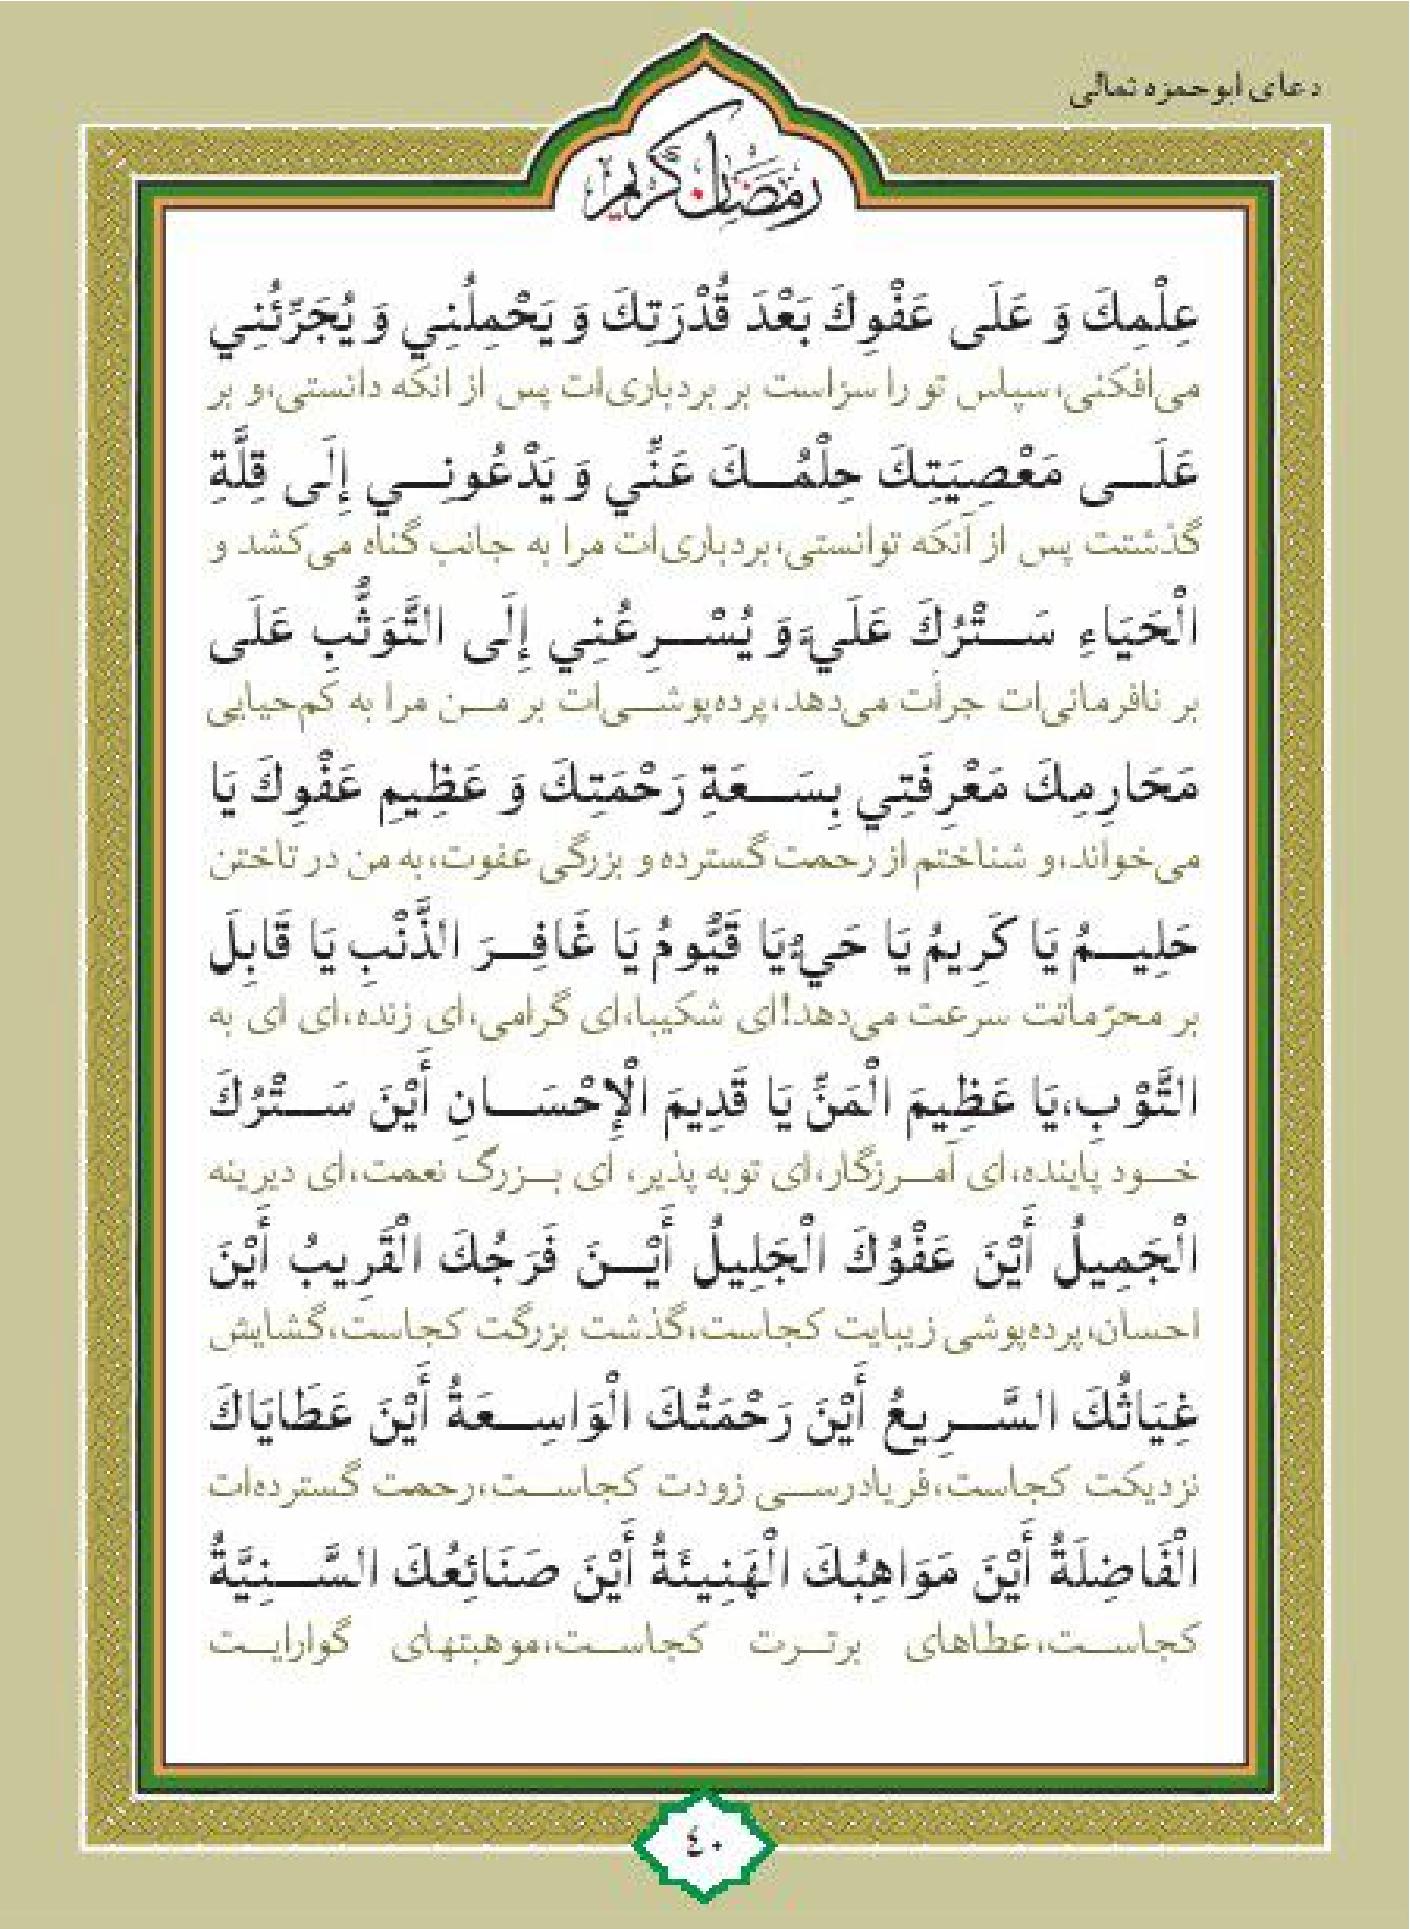 دعای ابوحمزه ثمالی
رمضان کریم
عِلْمِكَ وَ عَلَى عَفْوِكَ بَعْدَ قُدْرَتِكَ وَ يَحْمِلُنِي وَ يُجَرِّئُنِي
می‌افکنی،سپاس تو را سزاست بر بردباری‌ات پس از آنکه دانستی،و بر
عَلَــى مَعْصِيَتِكَ حِلْمُــكَ عَنِّي وَ يَدْعُونِــي إِلَى قِلَّةِ
گذشتت پس از آنکه توانستی،بردباری‌ات مرا به جانب گناه می‌کشد و
الْحَيَاءِ سَــتْرُكَ عَلَيَّ وَ يُسْــرِعُنِي إِلَى التَّوَثُّبِ عَلَى
بر نافرمانی‌ات جرأت می‌دهد،پرده‌پوشــی‌ات بر مــن مرا به کم‌حیایی
مَحَارِمِكَ مَعْرِفَتِي بِسَــعَةِ رَحْمَتِكَ وَ عَظِيمِ عَفْوِكَ يَا
می‌خواند،و شناختم از رحمت گسترده و بزرگی عفوت،به من در تاختن
حَلِيــمُ يَا كَرِيمُ يَا حَيُّ يَا قَيُّومُ يَا غَافِــرَ الذَّنْبِ يَا قَابِلَ
بر محرّماتت سرعت می‌دهد!ای شکیبا،ای گرامی،ای زنده،ای ای به
التَّوْبِ،يَا عَظِيمَ الْمَنِّ يَا قَدِيمَ الْإِحْسَــانِ أَيْنَ سَــتْرُكَ
خــود پاینده،ای آمــرزگار،ای توبه پذیر، ای بــزرگ نعمت،ای دیرینه
الْجَمِيلُ أَيْنَ عَفْوُكَ الْجَلِيلُ أَيْــنَ فَرَجُكَ الْقَرِيبُ أَيْنَ
احسان،پرده‌پوشی زیبایت کجاست،گذشت بزرگت کجاست،گشایش
غِيَاثُكَ السَّــرِيعُ أَيْنَ رَحْمَتُكَ الْوَاسِــعَةُ أَيْنَ عَطَايَاكَ
نزدیکت کجاست،فریادرســی زودت کجاســت،رحمت گسترده‌ات
الْفَاضِلَةُ أَيْنَ مَوَاهِبُكَ الْهَنِيئَةُ أَيْنَ صَنَائِعُكَ السَّــنِيَّةُ
کجاســت،عطاهای برتــرت کجاســت،موهبتهای گوارایــت
٤٠